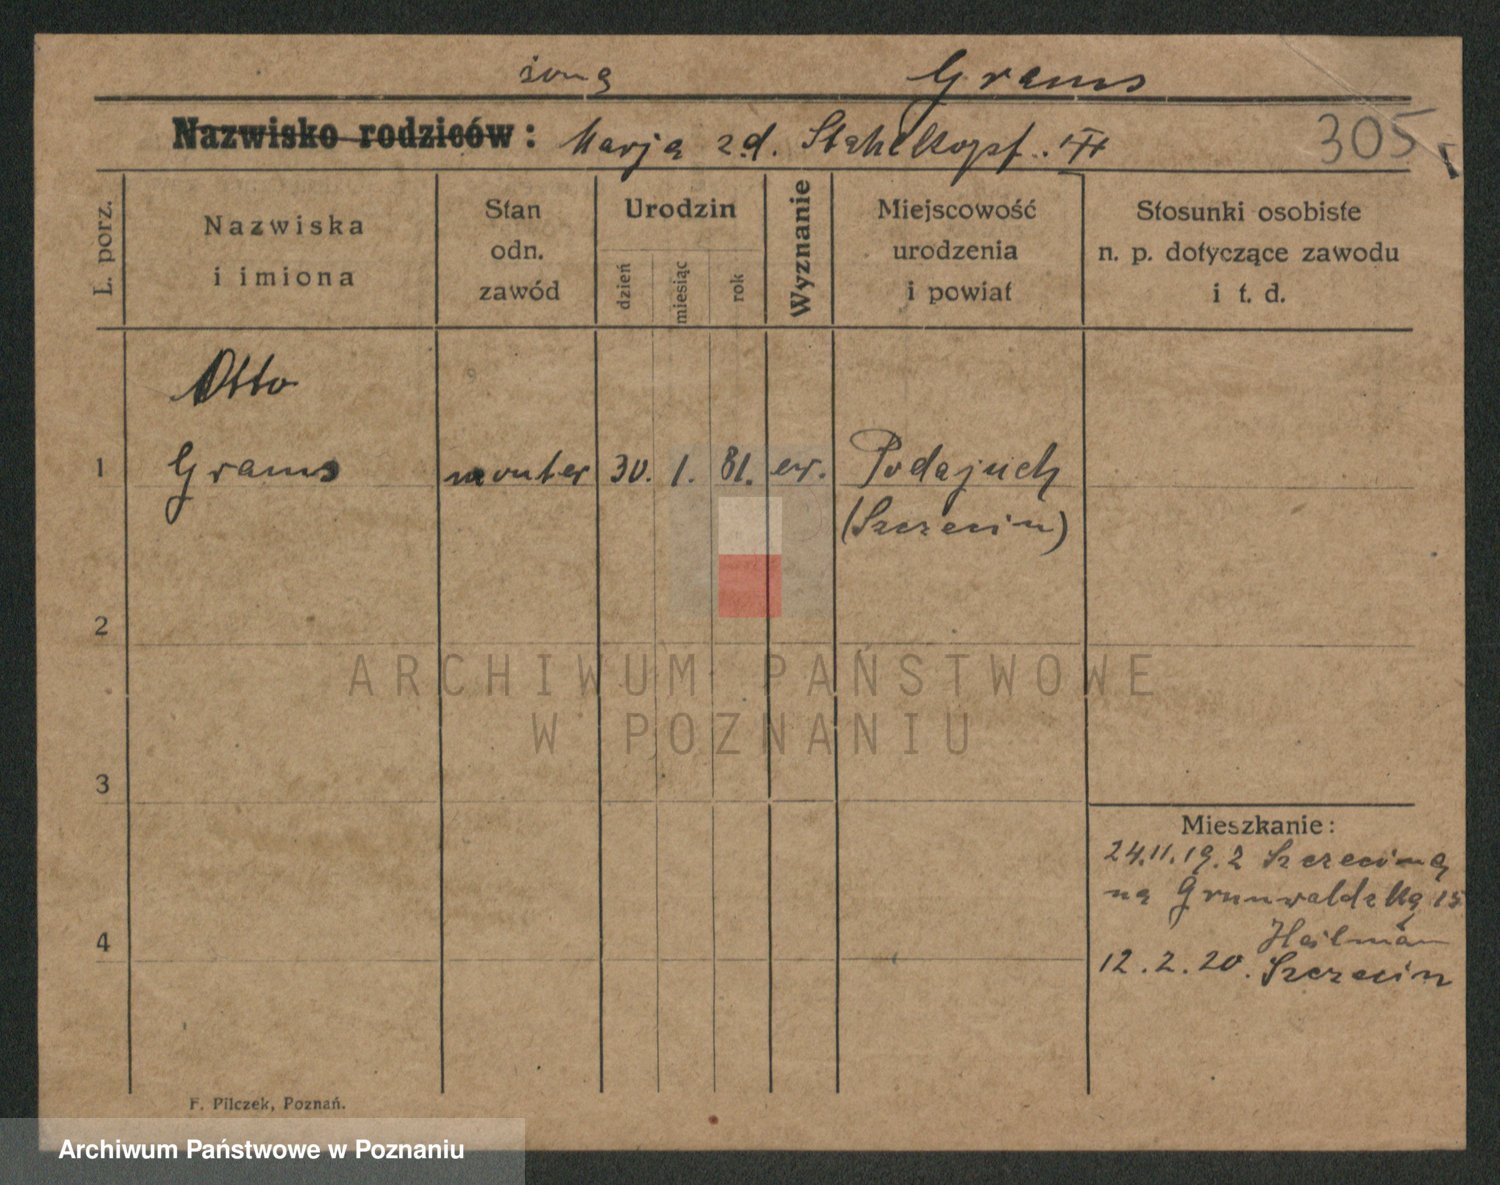 żona Grams
Nazwisko rodziców: Marja zd. Stahelkopf.
305
L. porz.
Nazwiska
i imiona
Stan
odn.
zawód
Urodzin
dzień
miesiąc
rok
Wyznanie
Miejscowość
urodzenia
i powiat
Stosunki osobiste
n. p. dotyczące zawodu
i t. d.
Otto
1 Grams monter 30. 1. 81. ew. Podajuch
(Szczecin)
2
3
4
Mieszkanie:
24.11.19. z Szczecina
na Grunwaldzką 15
12.2.20. Szczecin
F. Pilczek, Poznań.
ARCHIWUM PAŃSTWOWE
W POZNANIU
Archiwum Państwowe w Poznaniu